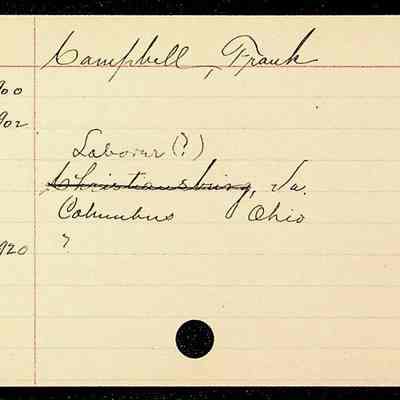 Campbell, Frank
900
902
Laborer (?)
Christiansburg, Va.
Columbus Ohio
920 ?